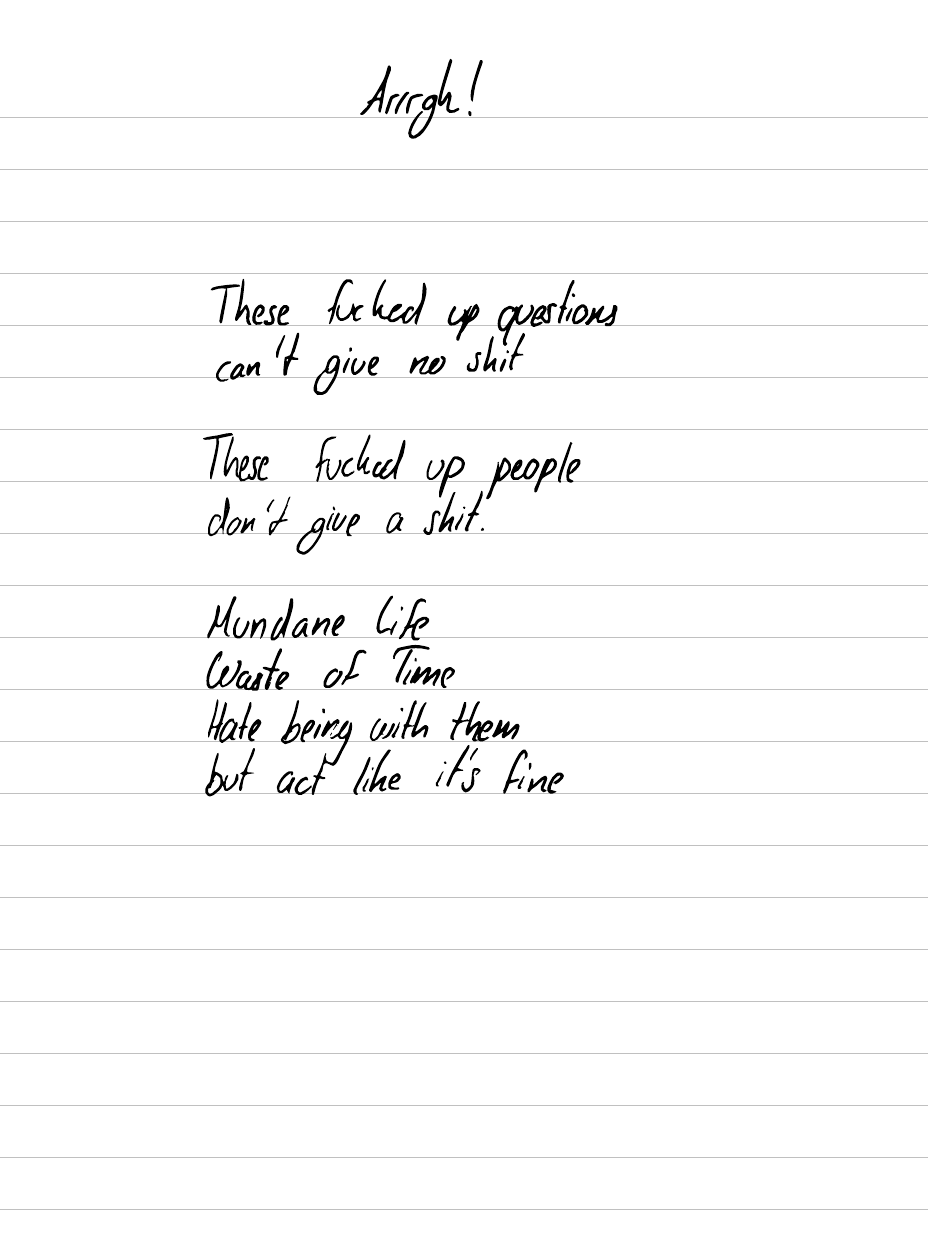 Arrrgh!
These fucked up questions
can't give no shit
These fucked up people
don't give a shit.
Mundane Life
Waste of Time
Hate being with them
but act like it's fine